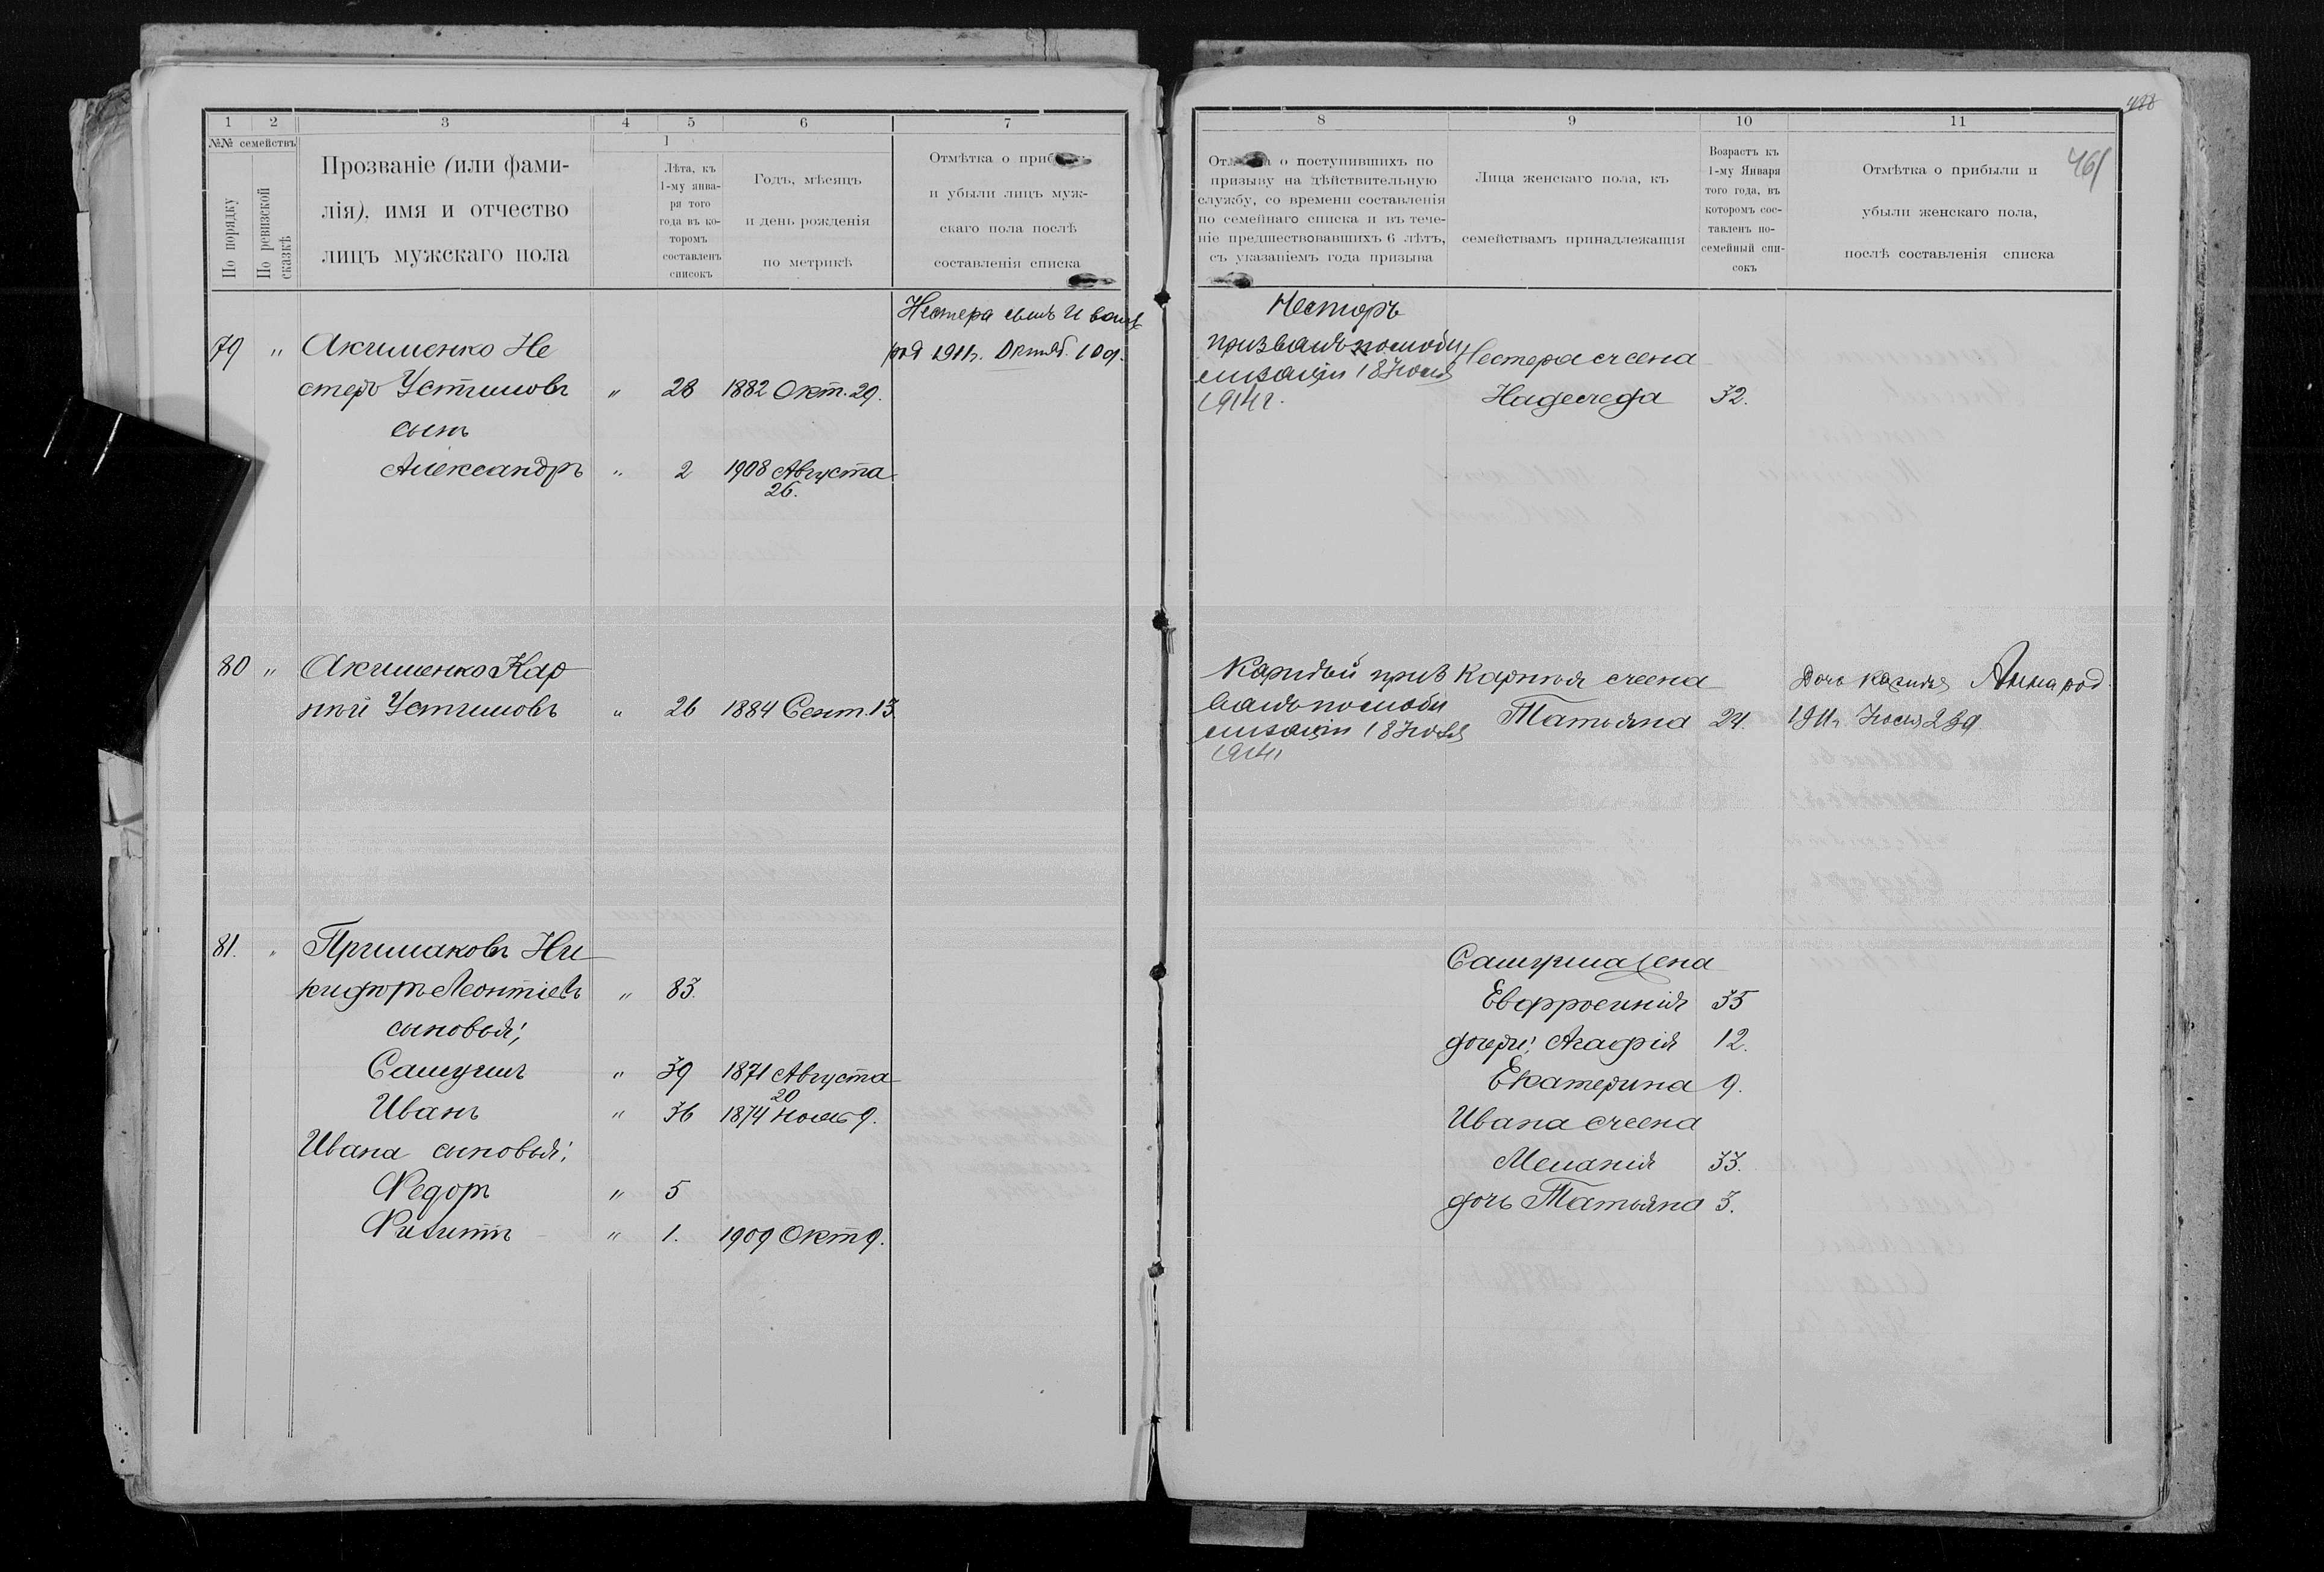 1 2 3 4 5 6 7
№№ семействъ
По порядку
По ревизской сказкѣ
Прозваніе (или фами-
лія), имя и отчество
лицъ мужскаго пола
Лѣта, къ
1-му янва-
ря того
года въ ко-
торомъ
составленъ
списокъ
Годъ, мѣсяцъ
и день рожденія
по метрикѣ
Отмѣтка о
и убыли лицъ муж-
скаго пола послѣ
составленія списка
Нестера сынъ Иванъ
род 1911г. Октяб. 10 д.
79 " Акименко Не
стеръ Устимовъ " 28 1882 Окт. 29.
сынъ
Александръ " 2 1908 Августа
26.
80 " Акименко Кар
пѣй Устимовъ " 26 1884 Сент. 13
81. " Примаковъ Ни
кифоръ Леонтіевъ " 83.
сыновья;
Самуилъ " 39 1871 Августа
20
Иванъ " 36 1874 Ноябр 9.
Ивана сыновья;
Федоръ " 5
Филиппъ " 1. 1909 Окт 9.
488
461
8 9 10 11
о поступившихъ по
призыву на дѣйствительную
службу, со времени составленія
по семейнаго списка и въ тече-
ніе предшествовавшихъ 6 лѣтъ,
съ указаніемъ года призыва
Лица женскаго пола, къ
семействамъ принадлежащія
Возрастъ къ
1-му Января
того года, въ
которомъ сос-
тавленъ по-
семейный спи-
сокъ
Отмѣтка о прибыли и
убыли женскаго пола,
послѣ составленія списка
Несторъ
призванъ по моби
лизаціи 18 Іюля
1914 г.
Нестера жена
Надежда 32.
Карпѣй приз
ванъ по моби
лизаціи 18 Іюля
1914г
Карпѣя жена
Татьяна 24.
Дочь Карпѣя Анна род.
1911г.
Самуила жена
Евфросинія 35
дочери; Агафія 12.
Екатерина 9.
Ивана жена
Меланія 33.
дочь Татьяна 3.